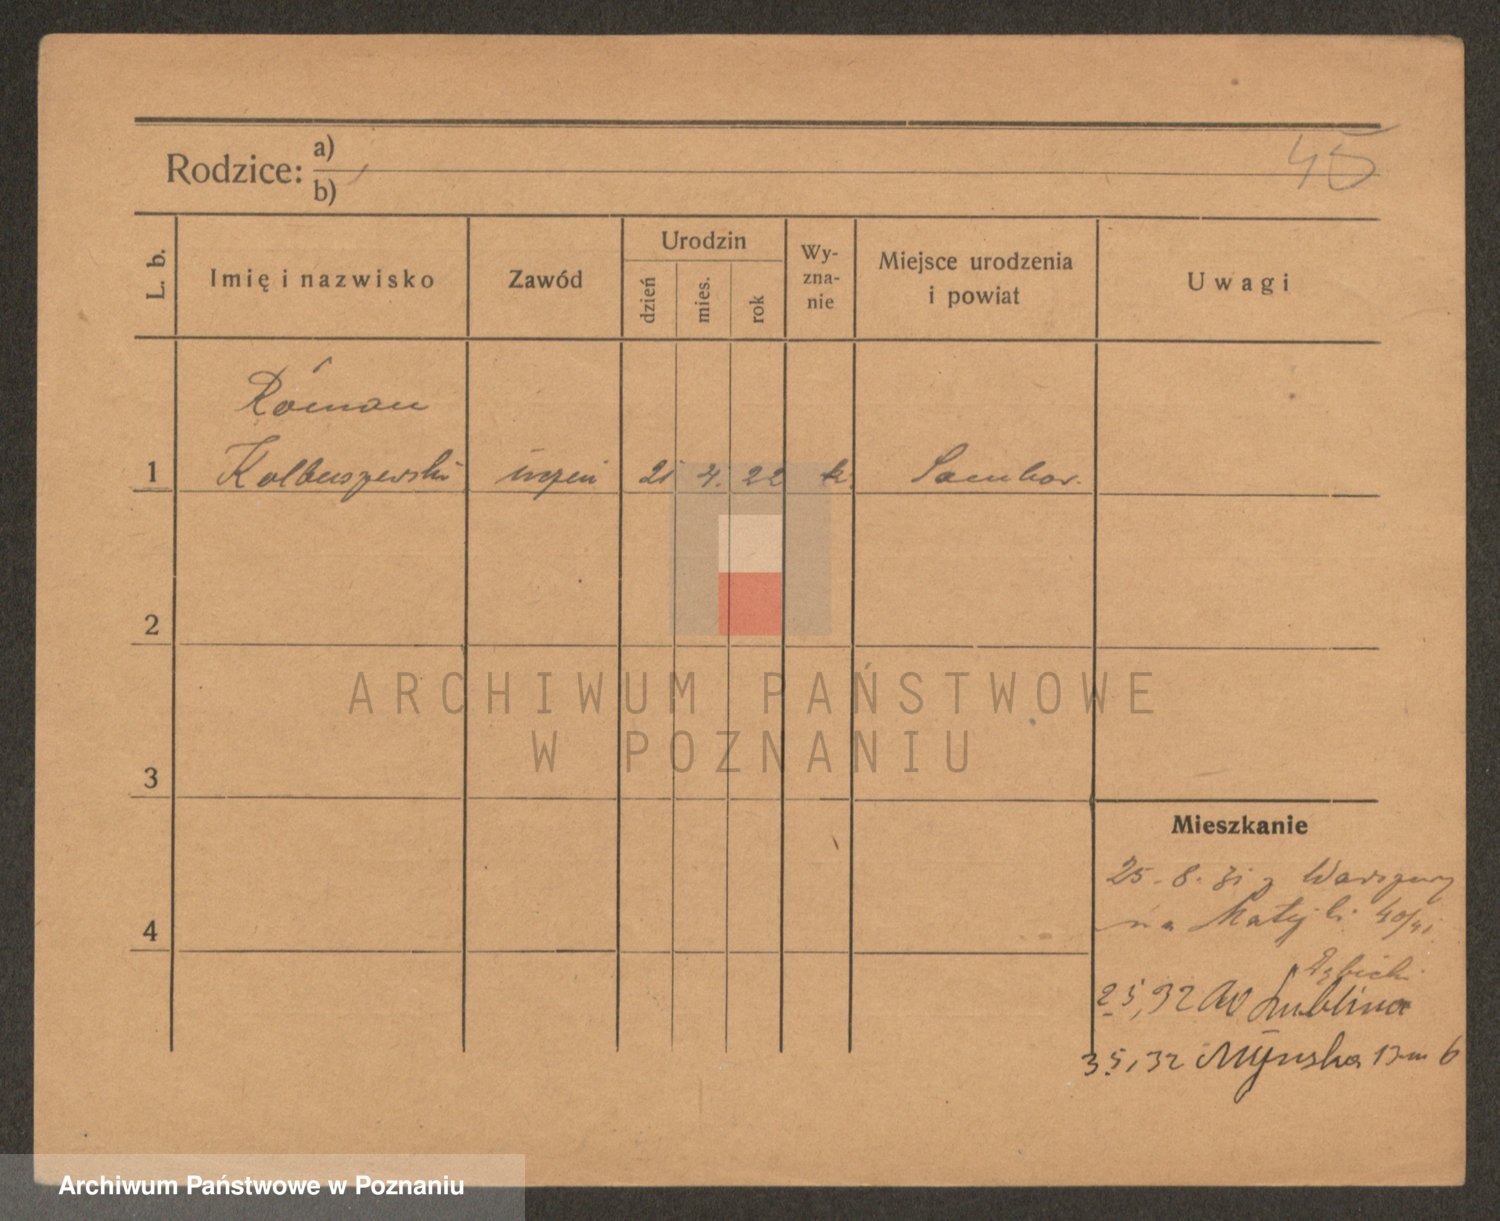 45
Rodzice: a)
b)
L. b.
Imię i nazwisko
Zawód
Urodzin
dzień
mies.
rok
Wy-
zna-
nie
Miejsce urodzenia
i powiat
Uwagi
Roman
1 Kolbuszewski uczeń 21 4. 22 k. Sambor.
2
3
4
Mieszkanie
25-8.31 z Warszawy
na Matejki 40/41
2 5,32 do Lublina
3 5,32 Młyńska 13 m 6
ARCHIWUM PAŃSTWOWE
W POZNANIU
Archiwum Państwowe w Poznaniu